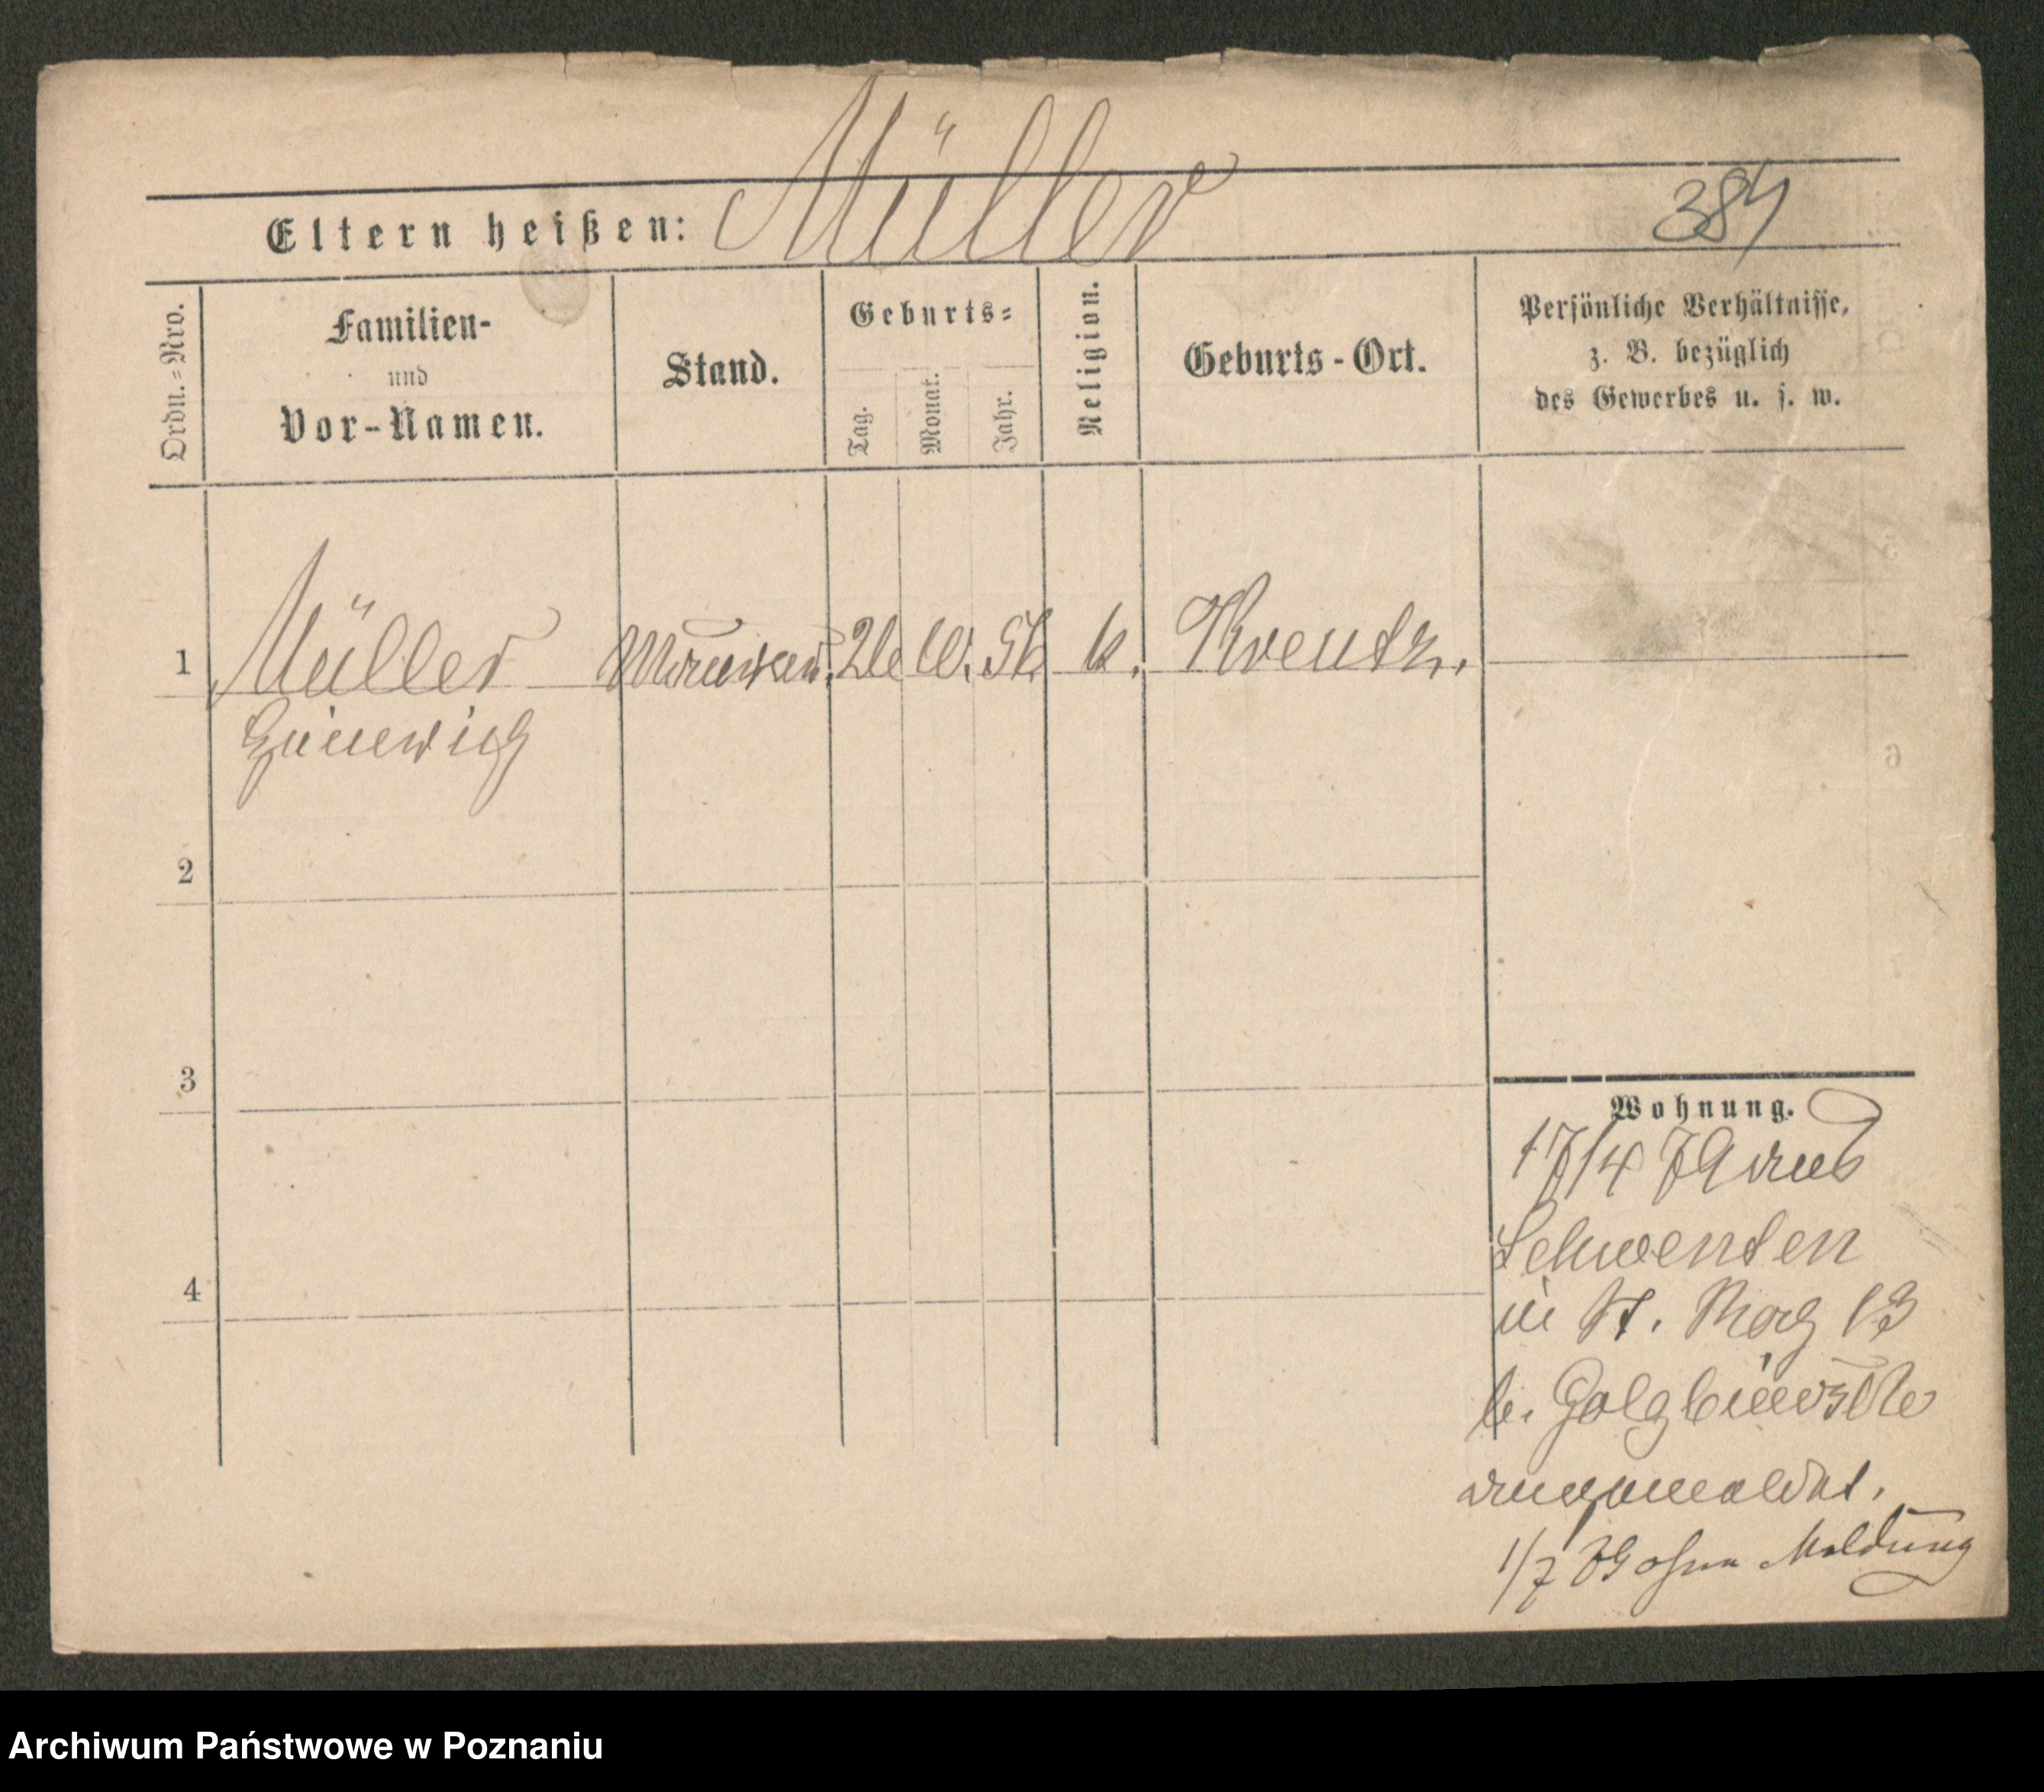 Eltern heißen: Müller 384
Ordn.=Nro.
Familien-
und
Vor-Namen.
Stand.
Geburts=
Tag.
Monat.
Jahr.
Religion.
Geburts-Ort.
Persönliche Verhältnisse,
z. B. bezüglich
des Gewerbes u. s. w.
1 Müller k. Kreutz.
Heinrich
2
3
4
Wohnung.
17/4 79 aus
Schwenten
in St.
b.
angemeldet.
1/7 79 ohne Meldung
Archiwum Państwowe w Poznaniu